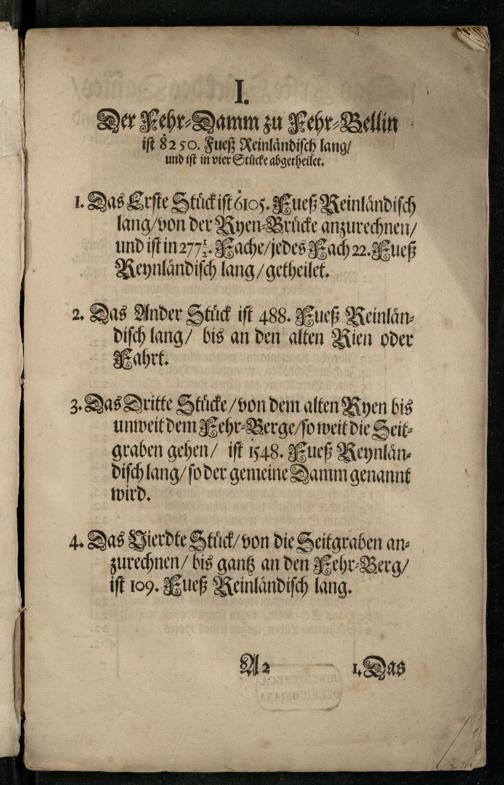 I.
Der Fehr-Damm zu Fehr-Bellin
ist 8250. Fueß Reinländisch lang/
und ist in vier Stücke abgetheilet.
1. Das Erste Stück ist 6105. Fueß Reinländisch
lang/von der Ryen-Brücke anzurechnen/
und ist in 277½. Fache/jedes Fach 22. Fueß
Reynländisch lang/getheilet.
2. Das Ander Stück ist 488. Fueß Reinlän-
disch lang/ bis an den alten Rien oder
Fahrt.
3. Das Dritte Stücke/von dem alten Ryen bis
unweit dem Fehr-Berge/so weit die Seit-
graben gehen/ ist 1548. Fueß Reynlän-
disch lang/so der gemeine Damm genannt
wird.
4. Das Vierdte Stück/von die Seitgraben an-
zurechnen/ bis gantz an den Fehr-Berg/
ist 109. Fueß Reinländisch lang.
A2 1. Das